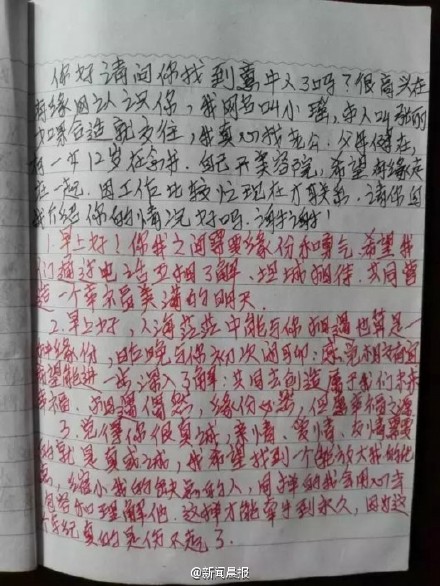 你好请问你找到意中人了吗？很高兴在
有缘网认识你，我网名叫小瑶，本人叫
合适就交往，我真心找老公，父母健在，
有一个12岁在念书，自己开美容院，希望有缘走
在一起，因工作比较忙现在才联系，请你回
我介绍你的情况好吗，谢谢！
1.早上好！你我之间需要缘份和勇气，希望我
们通过电话互相了解、坦诚相待、共同营
造一个幸福美满的明天
2.早上好，人海茫茫中能与你相遇也算是一
种缘份，昨晚与你初次
希望能进一步深入了解：共同去创造属于我们未来
幸福，相遇偶然，缘份必然，但愿幸福
3.觉得你很真诚，亲情、爱情、友情需要
的就是真诚，我希望找到一个能放大我的优
点，缩小我的缺点的人，同样的我会用心去
包容和理解他，这样才能牵手到永久，因为这
年纪真的真伤不起了
@新闻晨报